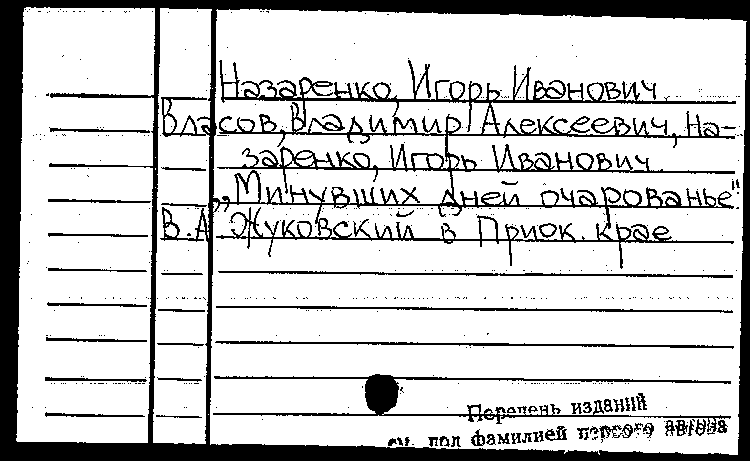 Назаренко, Игорь Иванович.
Власов, Владимир Алексеевич, На-
заренко, Игорь Иванович.
„Минувших дней очарованье"
В.А Жуковский в Приок. крае
Перечень изданий
см. под фамилией первого автора